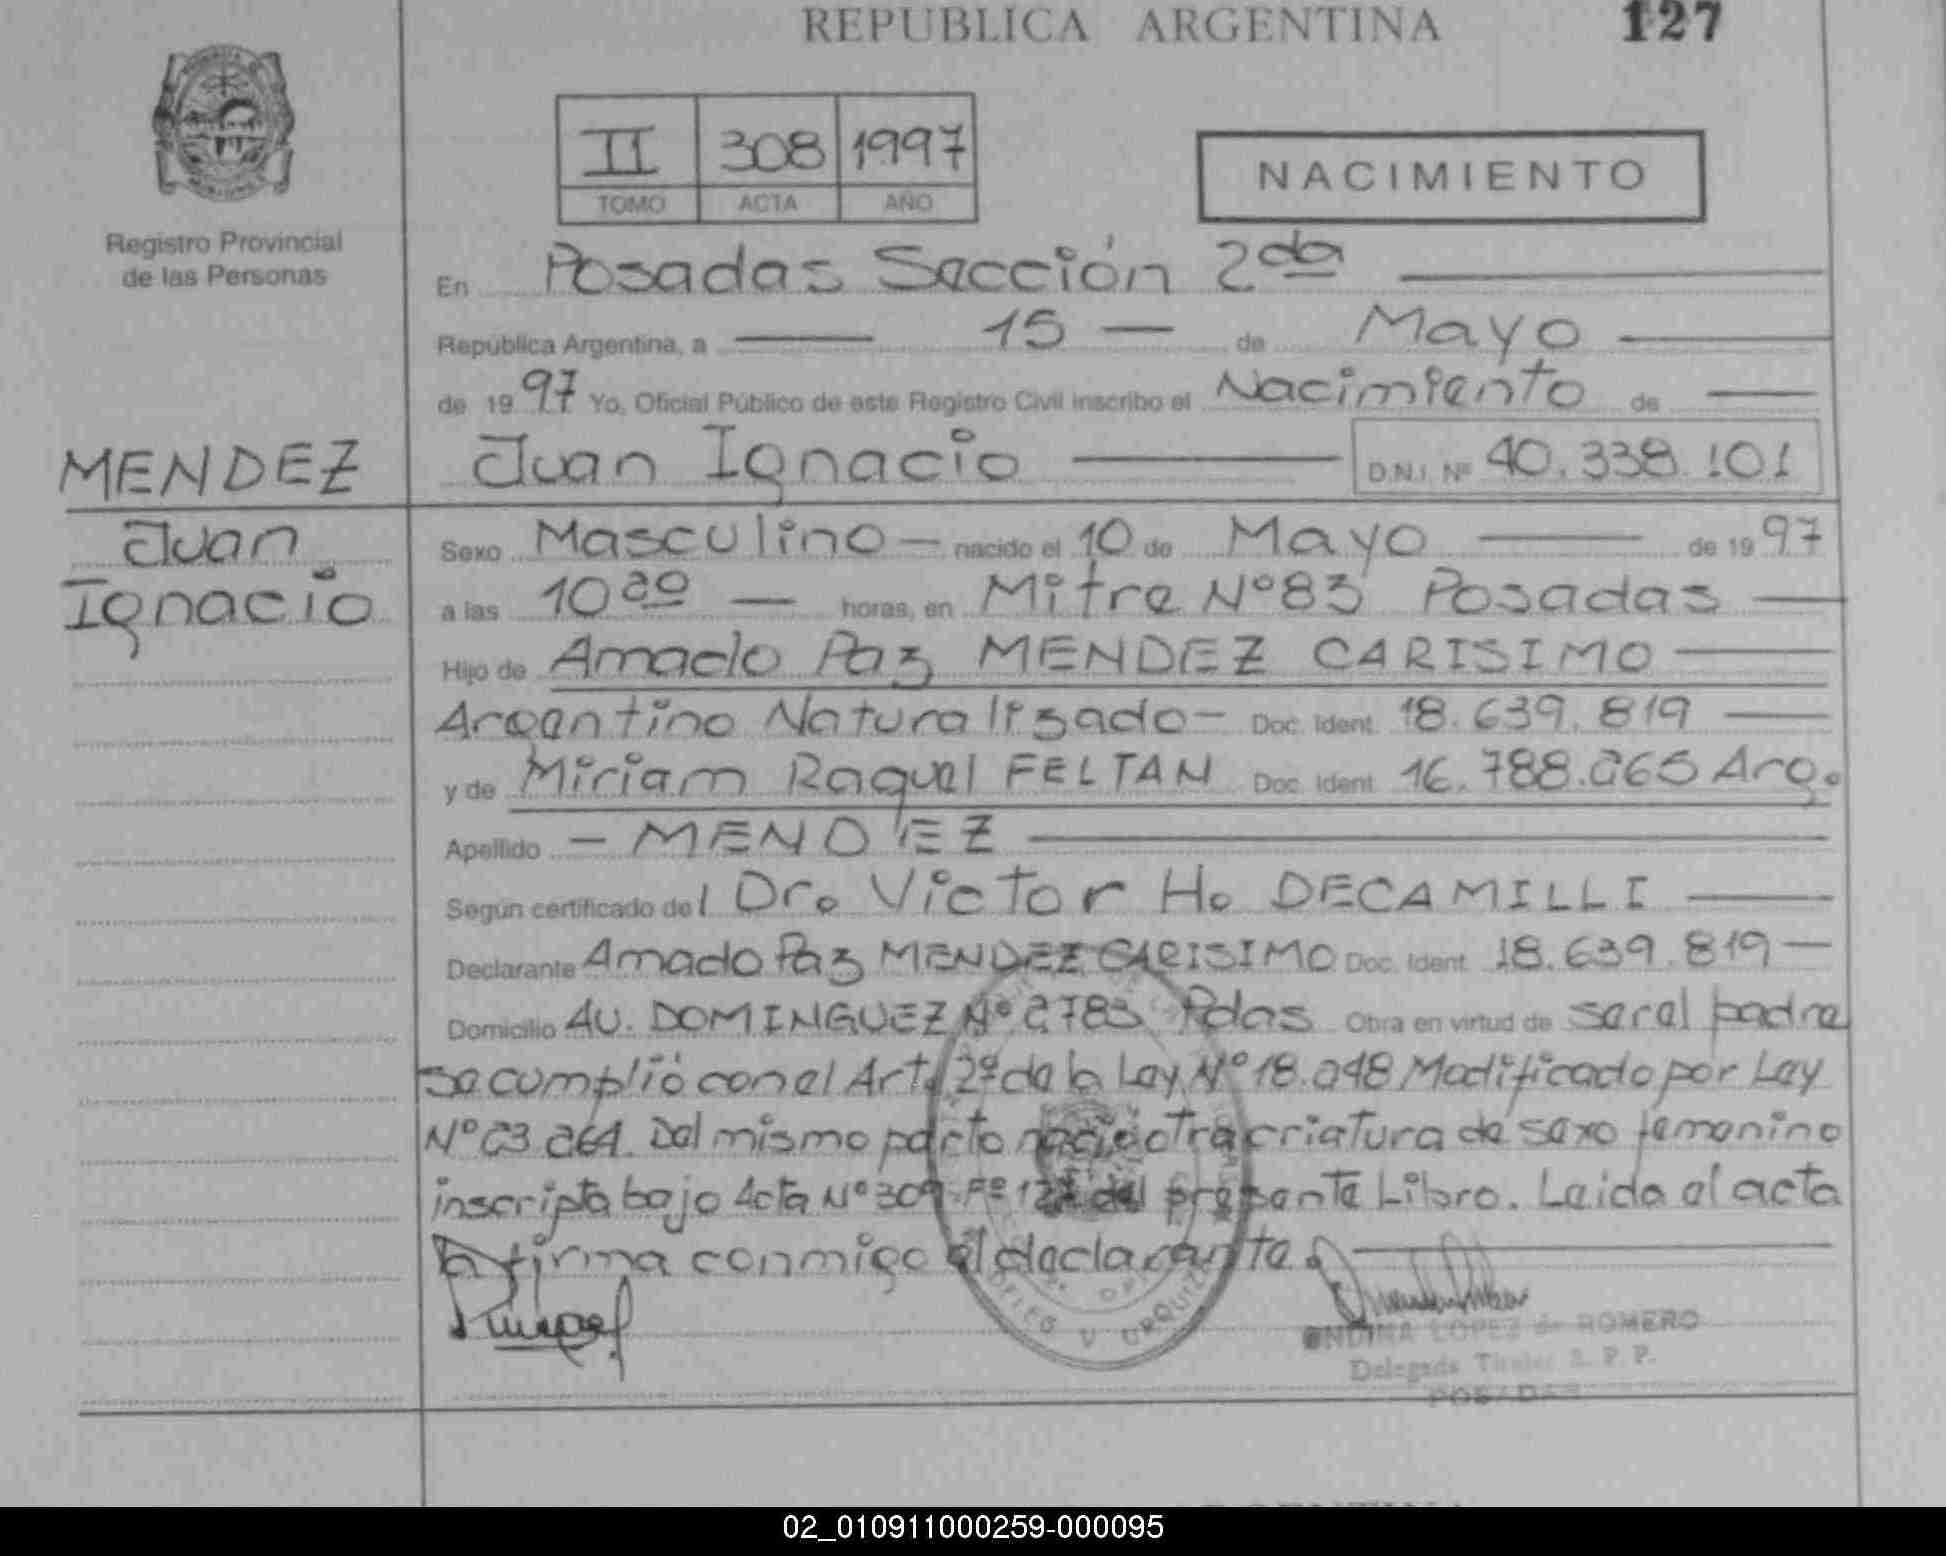 REPUBLICA ARGENTINA 127
II 308 1997
TOMO ACTA AÑO
NACIMIENTO
Registro Provincial
de las Personas
En Posadas Sección 2da
República Argentina, a 15 de Mayo
de 1997 Yo, Oficial Público de este Registro Civil inscribo el Nacimiento de
MENDEZ
Juan Ignacio D.N.I. Nº 40.338.101
Juan
Ignacio
Sexo Masculino nacido el 10 de Mayo de 1997
a las 10 horas, en Mitre Nº 83 Posadas
Hijo de Amado Paz MENDEZ CARISIMO
Argentino Naturalizado - Doc. Ident. 18.639.819
y de Miriam Raquel FELTAN Doc. Ident. 16.788.265 Arg.
Apellido - MENDEZ
Según certificado del Dr. Victor H. DECAMILLI
Declarante Amado Paz MENDEZ CARISIMO Doc. Ident. 18.639.819
Domicilio AV. DOMINGUEZ Nº 2783 Pdas Obra en virtud de ser el padre
se cumplió con el Art. 2º de la Ley Nº 18.248 Modificado por Ley
Nº 23.264. Del mismo parto nació otra criatura de sexo femenino
inscripta bajo Acta Nº 309 Fº del presente Libro. Leida el acta
la firma conmigo el declarante.
ONDINA LOPEZ de ROMERO
Delegada Titular R. P. P.
POSADAS
02_010911000259-000095